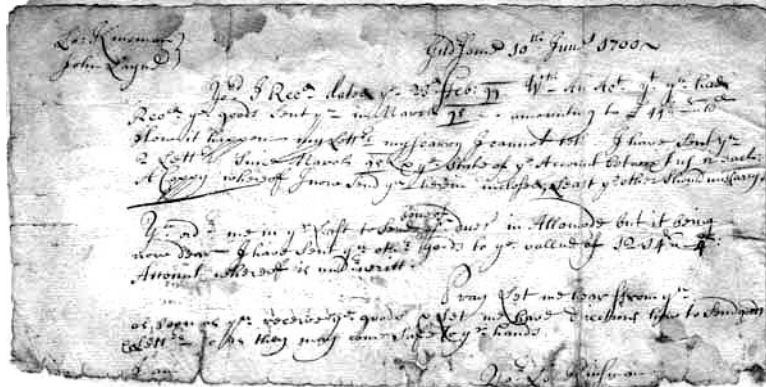 Lo: Kinsman
John Payne
Guldford 10th June 1700
Yrs I Recd dated ye 28 Feb: 99 Wth An Act yt you had
Recd ye goods sent you in March 98 amounting to £ 44
How it happens my Lettrs miscarry I cannot tell I have sent you
2 Lettrs Since March 98 & ye State of ye Account betwixt us in each
A Coppy whereof I now send you herein inclosed, Least ye other should miscarry
You ordrd me in yr Last to send some of ye dues in Allamode but it being
now dear I have sent you othr goods to ye vallue of 12 14
Account whereof is undrwritt
Pray Let me hear from you
as soon as you receive ye goods & Let me have directions how to send you
Lettrs so as they may come safe to yr hands
I am
Yor Lo: Kinsman